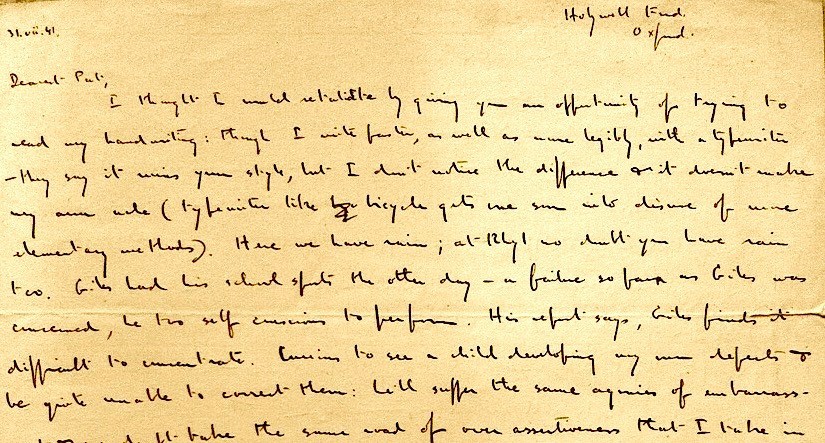 Holywell End.
Oxford.
31.vii.41.
Dearest Pat,
I thought I would retaliate by giving you an opportunity of trying to
read my handwriting: though I write faster, as well as more legibly, with a typewriter
- they say it ruins your style, but I don't notice the difference & it doesn't make
my arm ache (typewriter like bicycle gets one soon into disuse of more
elementary methods). Here we have rain; at Rhyl no doubt you have rain
too. Giles had his school sports the other day - a failure so far as Giles was
concerned, he too self conscious to perform. His report says, Giles finds it
difficult to concentrate. Curious to see a child developing my own defects &
be quite unable to correct them: he'll suffer the same agonies of embarrass-
take the same road of over assertiveness that I take in